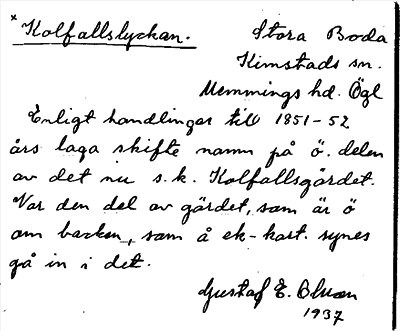 × Kolfallslyckan. Stora Boda
Kimstads sn.
Memmings hd. Ögl
Enligt handlingar till 1851-52
års laga skifte namn på ö. delen
av det nu s.k. Kolfallsgärdet.
Var den del av gärdet, som är ö
om backen, som å ek-kart. synes
gå in i det.
Gustaf E. Bluan
1937